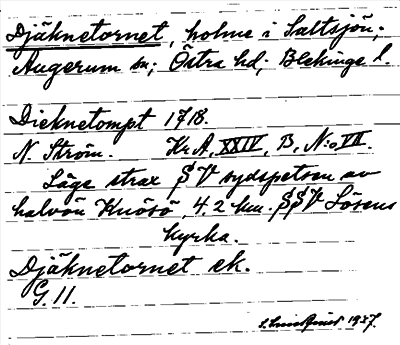 Djäknetornet, holme i Saltsjön;
Augerum sn; Östra hd; Blekinge l.
Dieknetompt 1718.
N. Ström. Kr.A, XXIV, B, N:o VII.
Läge strax SV sydspetsen av
halvön Knösö, 4.2 km. SSV Lösens
kyrka.
Djäknetornet ek.
G. 11.
1937.